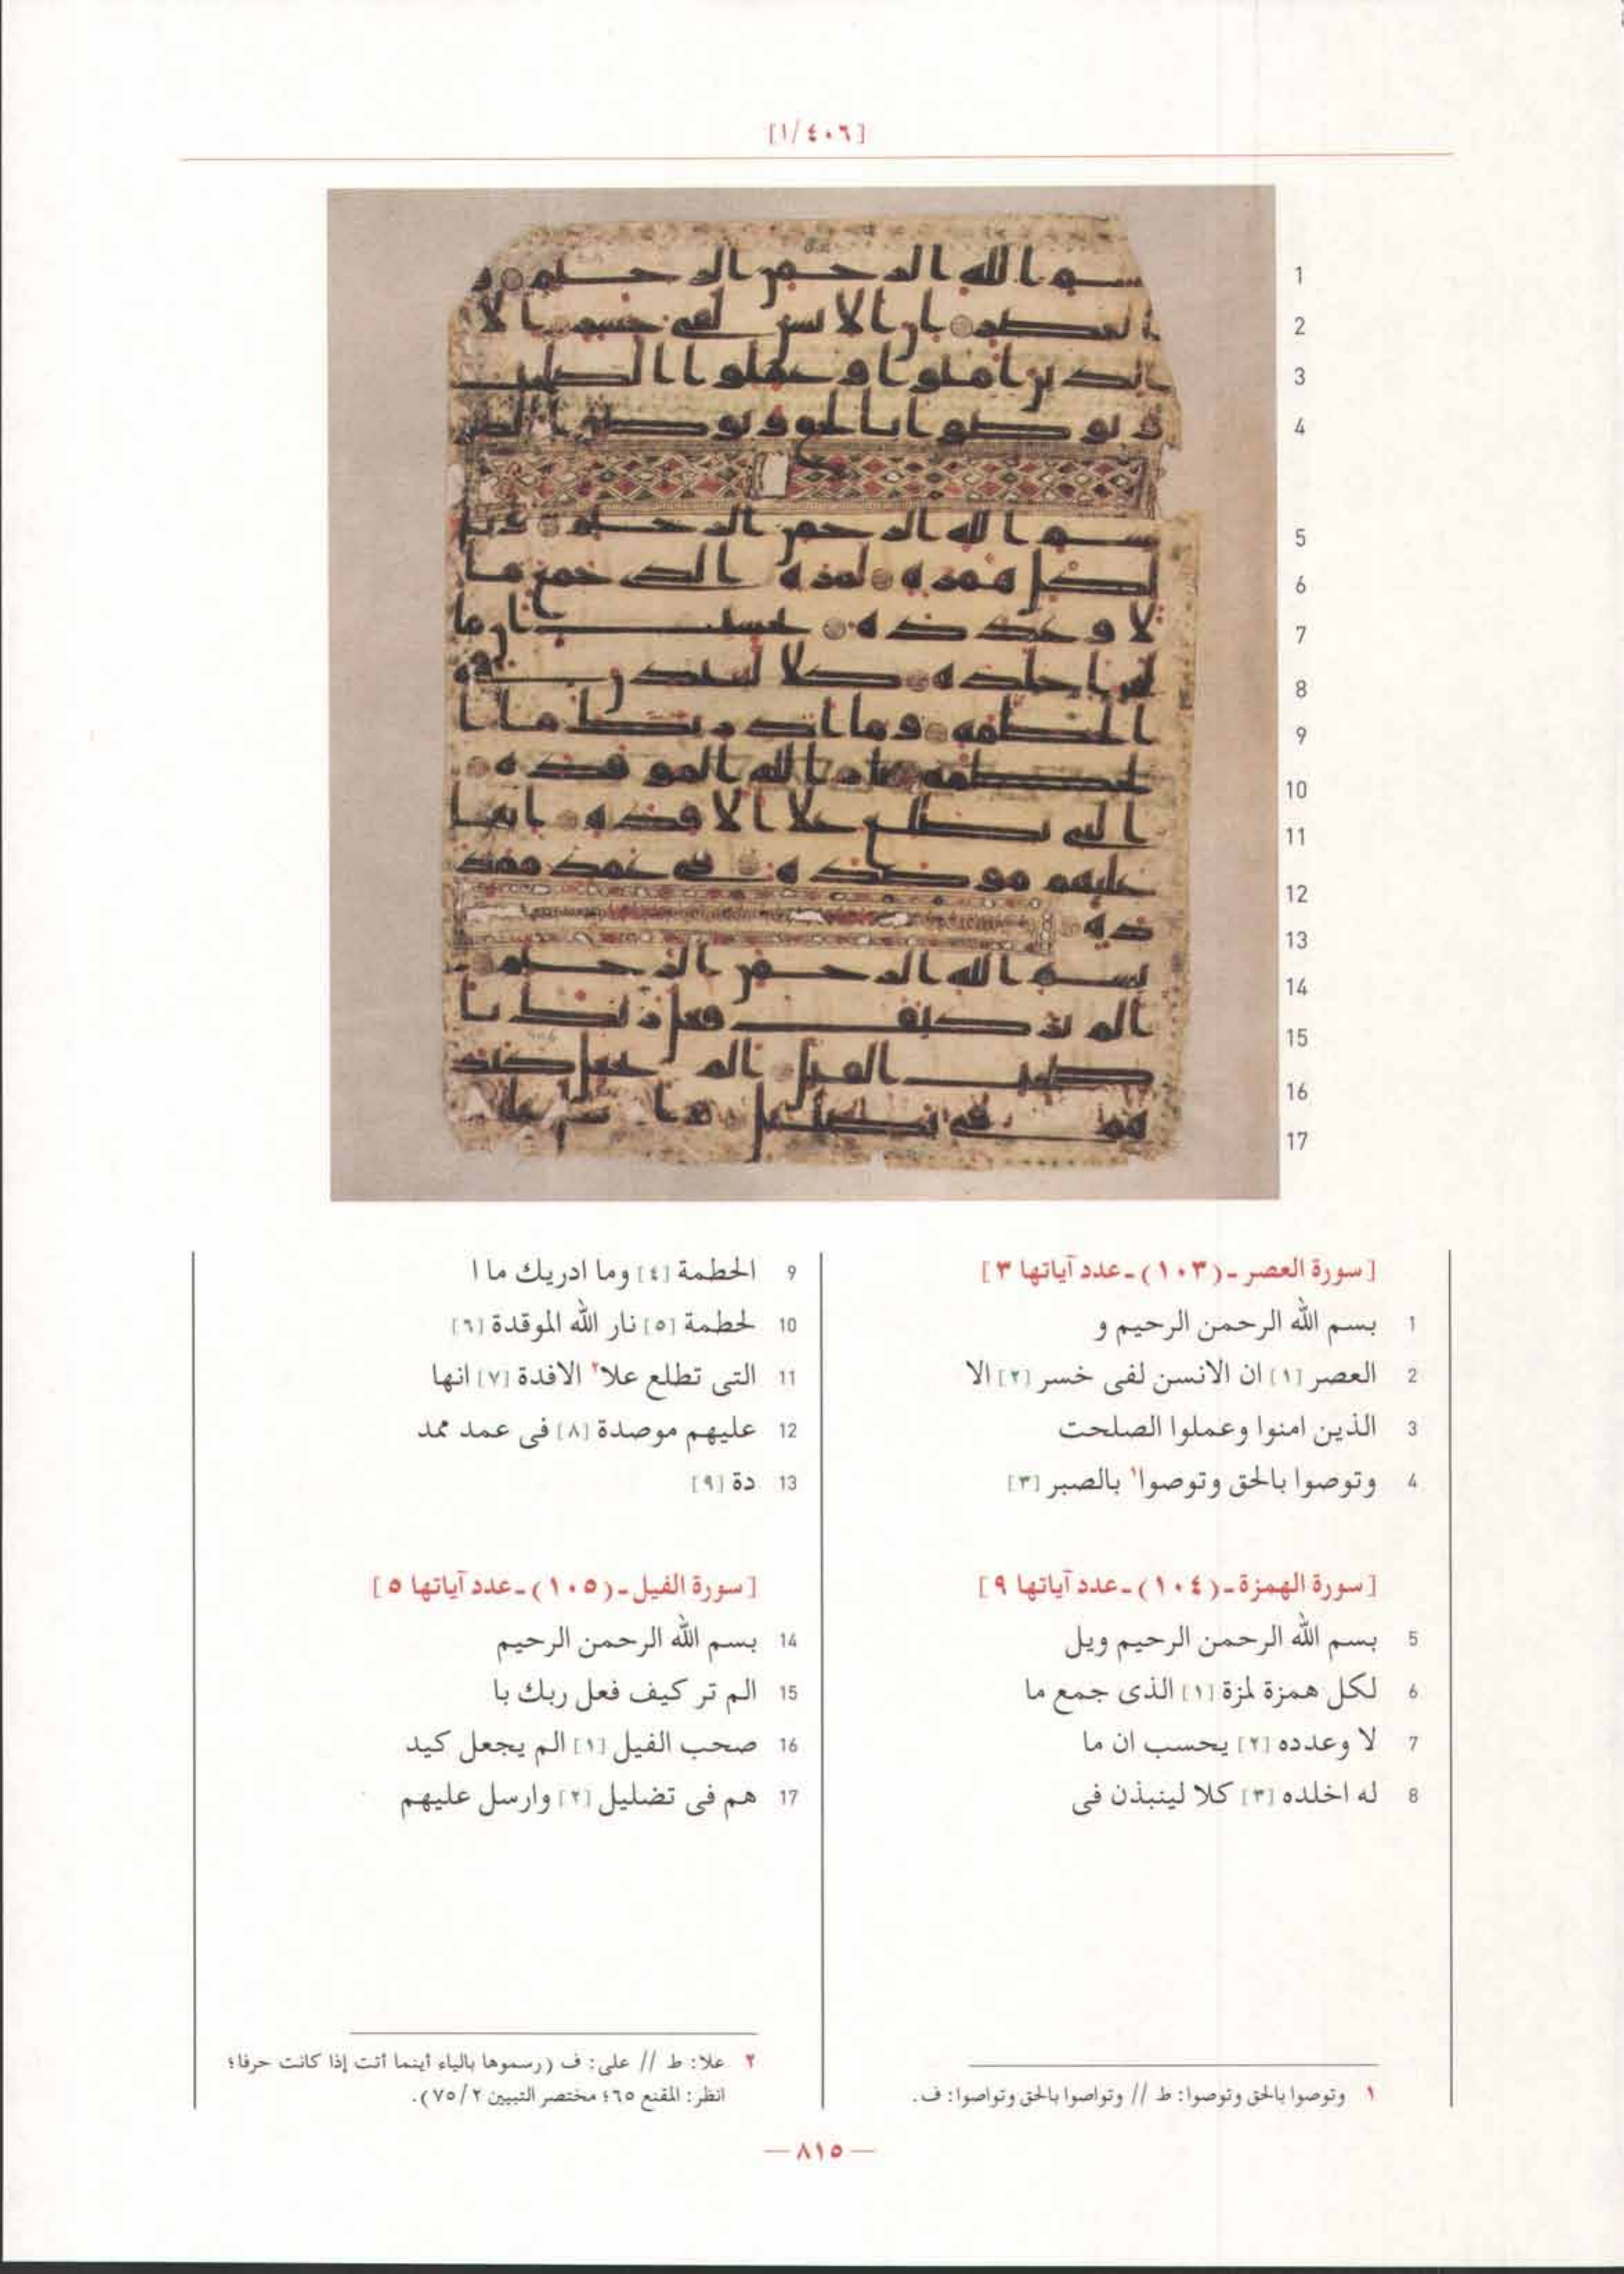 [١/٤٠٦]
1
2
3
4
5
6
7
8
9
10
11
12
13
14
15
16
17
[سورة العصر ـ (١٠٣) ـ عدد آياتها ٣]
1 بسم الله الرحمن الرحيم و
2 العصر [١] ان الانسن لفى خسر [٢] الا
3 الذين امنوا وعملوا الصلحت
4 وتوصوا بالحق وتوصوا١ بالصبر [٣]
[سورة الهمزة ـ (١٠٤) ـ عدد آياتها ٩]
5 بسم الله الرحمن الرحيم ويل
6 لكل همزة لمزة [١] الذى جمع ما
7 لا وعدده [٢] يحسب ان ما
8 له اخلده [٣] كلا لينبذن فى
9 الحطمة [٤] وما ادريك ما ا
10 لحطمة [٥] نار الله الموقدة [٦]
11 التى تطلع علا٢ الافدة [٧] انها
12 عليهم موصدة [٨] فى عمد ممد
13 دة [٩]
[سورة الفيل ـ (١٠٥) ـ عدد آياتها ٥]
14 بسم الله الرحمن الرحيم
15 الم تر كيف فعل ربك با
16 صحب الفيل [١] الم يجعل كيد
17 هم فى تضليل [٢] وارسل عليهم
١ وتوصوا بالحق وتوصوا: ط // وتواصوا بالحق وتواصوا: ف.
٢ علا: ط // على: ف (رسموها بالياء أينما أتت إذا كانت حرفا؛
انظر: المقنع ٦٥؛ مختصر التبيين ٢/ ٧٥).
— ٨١٥ —